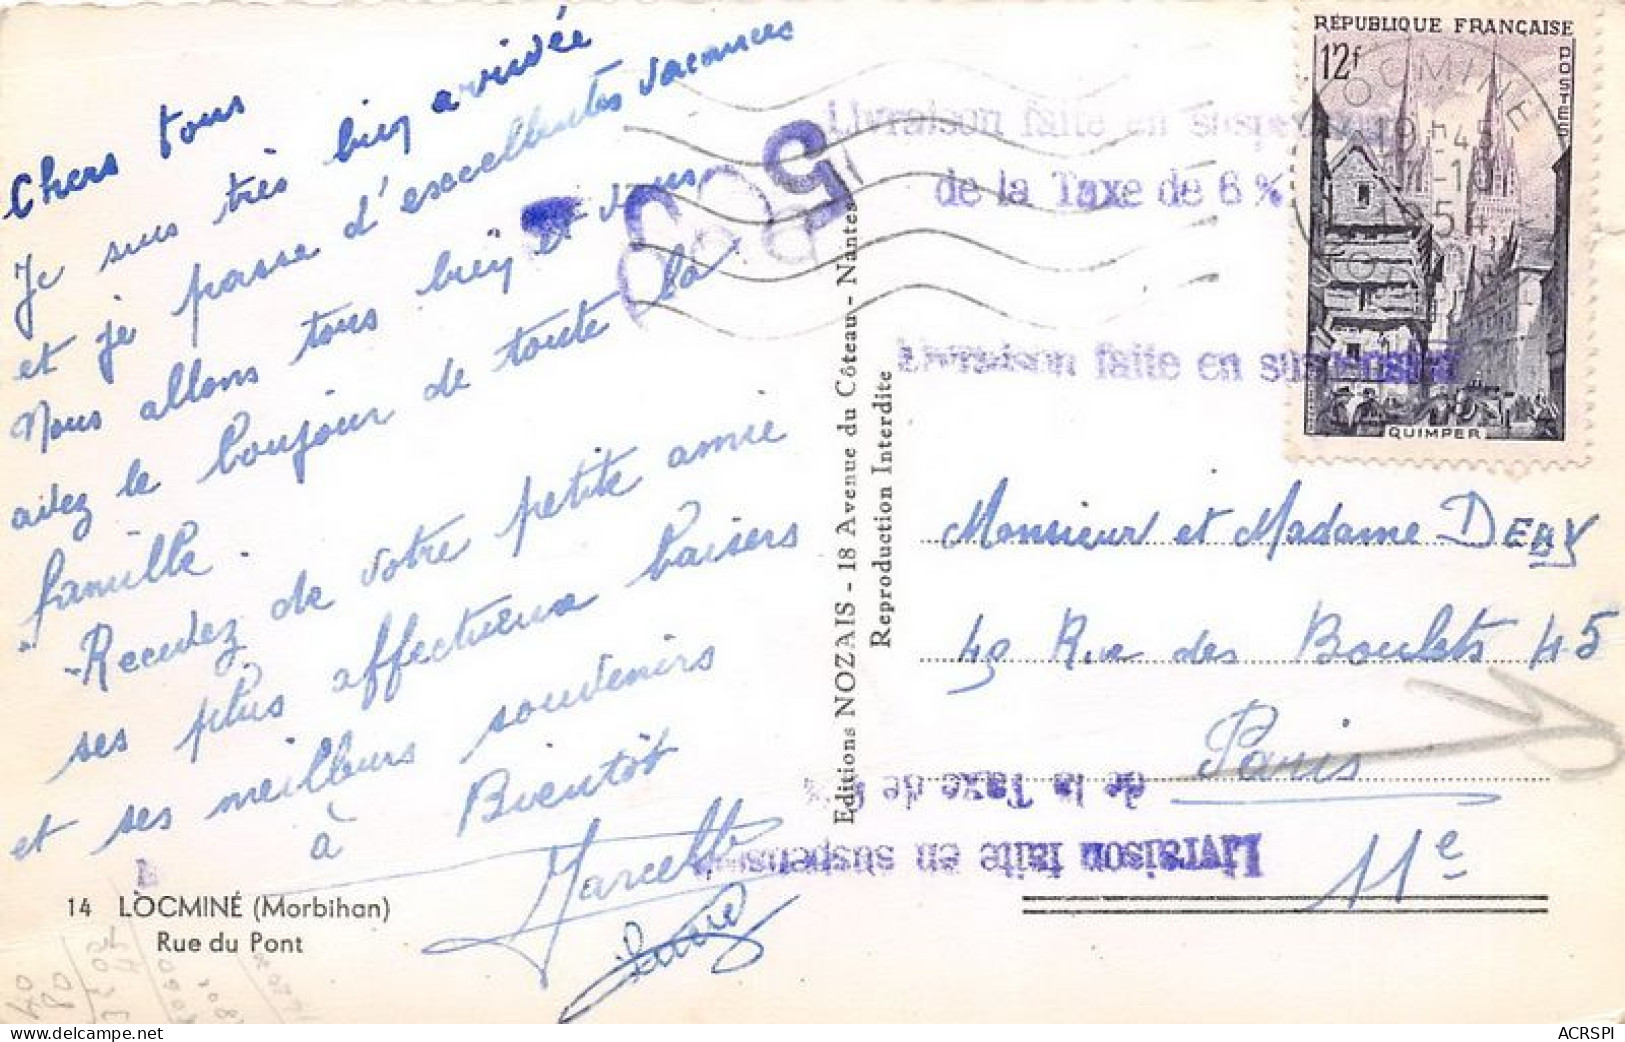 Chers tous
Je suis très bien arrivée
et je passe d'excellentes vacances
Nous allons tous bien et vous
avez le bonjour de toute la
famille.
Recevez de votre petite amie
ses plus affectueux baisers
et ses meilleurs souvenirs
à Bientôt
Marcelle
14 LOCMINÉ (Morbihan)
Rue du Pont
Editions NOZAIS - 18 Avenue du Côteau - Nantes
Reproduction Interdite
RÉPUBLIQUE FRANÇAISE
12f
POSTES
QUIMPER
LOCMINE
Livraison faite en suspension
de la Taxe de 6 %
Livraison faite en suspension
Monsieur et Madame
49 Rue des Boulets 45
Paris
11e
de la Taxe de 6 %
Livraison faite en suspension
ACRSPI